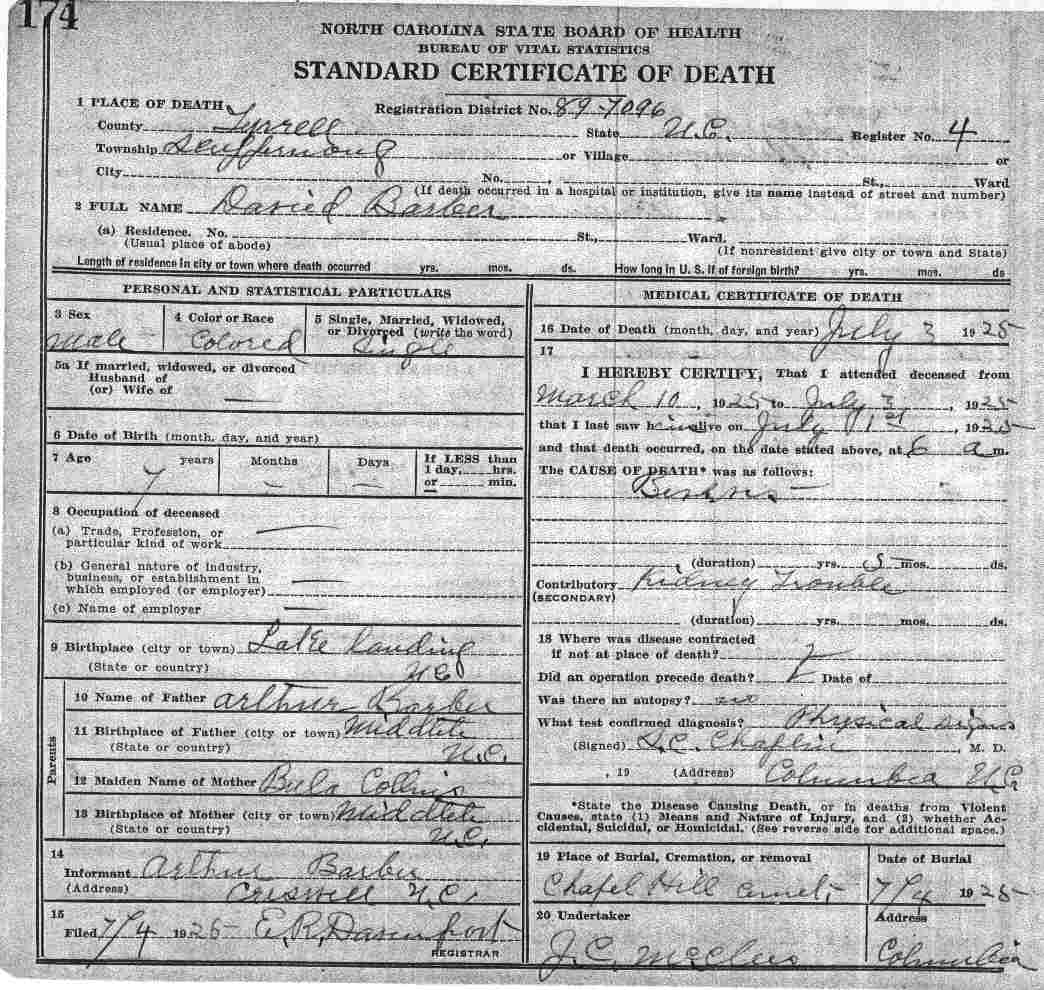 174
NORTH CAROLINA STATE BOARD OF HEALTH
BUREAU OF VITAL STATISTICS
STANDARD CERTIFICATE OF DEATH
1 PLACE OF DEATH
Registration District No. 89-7096
County Tyrrell State N.C. Register No. 4
Township Scuppernong or Village or
City No. , St., Ward
(If death occurred in a hospital or institution, give its name instead of street and number)
2 FULL NAME David Barber
(a) Residence. No. St., Ward.
(Usual place of abode) (If nonresident give city or town and State)
Length of residence in city or town where death occurred yrs. mos. ds. How long in U. S. if of foreign birth? yrs. mos. ds
PERSONAL AND STATISTICAL PARTICULARS
3 Sex 4 Color or Race 5 Single, Married, Widowed, or Divorced (write the word)
Male Colored Single
5a If married, widowed, or divorced
Husband of
(or) Wife of —
6 Date of Birth (month, day, and year)
7 Age 7 years Months – Days — If LESS than
1 day, hrs.
or min.
8 Occupation of deceased
(a) Trade, Profession, or
particular kind of work —
(b) General nature of industry,
business, or establishment in
which employed (or employer) —
(c) Name of employer —
9 Birthplace (city or town) Lake Landing
(State or country) N.C
Parents
10 Name of Father Arthur Barber
11 Birthplace of Father (city or town) Middlete
(State or country) N.C.
12 Maiden Name of Mother Bula Collins
13 Birthplace of Mother (city or town) Middlete
(State or country) N.C.
14
Informant Arthur Barber
(Address) Criswell N.C.
15
Filed 7/4 1925 E.R. Davenport
REGISTRAR
MEDICAL CERTIFICATE OF DEATH
16 Date of Death (month, day, and year) July 3 1925
17
I HEREBY CERTIFY, That I attended deceased from
March 10, 1925 to July 3, 1925
that I last saw him alive on July 1st, 1925
and that death occurred, on the date stated above, at 6 a m.
The CAUSE OF DEATH* was as follows:
(duration) yrs. 5 mos. ds.
Contributory Kidney Trouble
(SECONDARY)
(duration) yrs. mos. ds.
18 Where was disease contracted
if not at place of death?
Did an operation precede death? Date of
Was there an autopsy? no
What test confirmed diagnosis? Physical signs
(Signed) S.C. Chaplin, M. D.
, 19 (Address) Columbia N.C
*State the Disease Causing Death, or in deaths from Violent
Causes, state (1) Means and Nature of Injury, and (2) whether Ac-
cidental, Suicidal, or Homicidal. (See reverse side for additional space.)
19 Place of Burial, Cremation, or removal Date of Burial
Chapel Hill Cemet. 7/4 1925
20 Undertaker Address
J.C. McClees Columbia